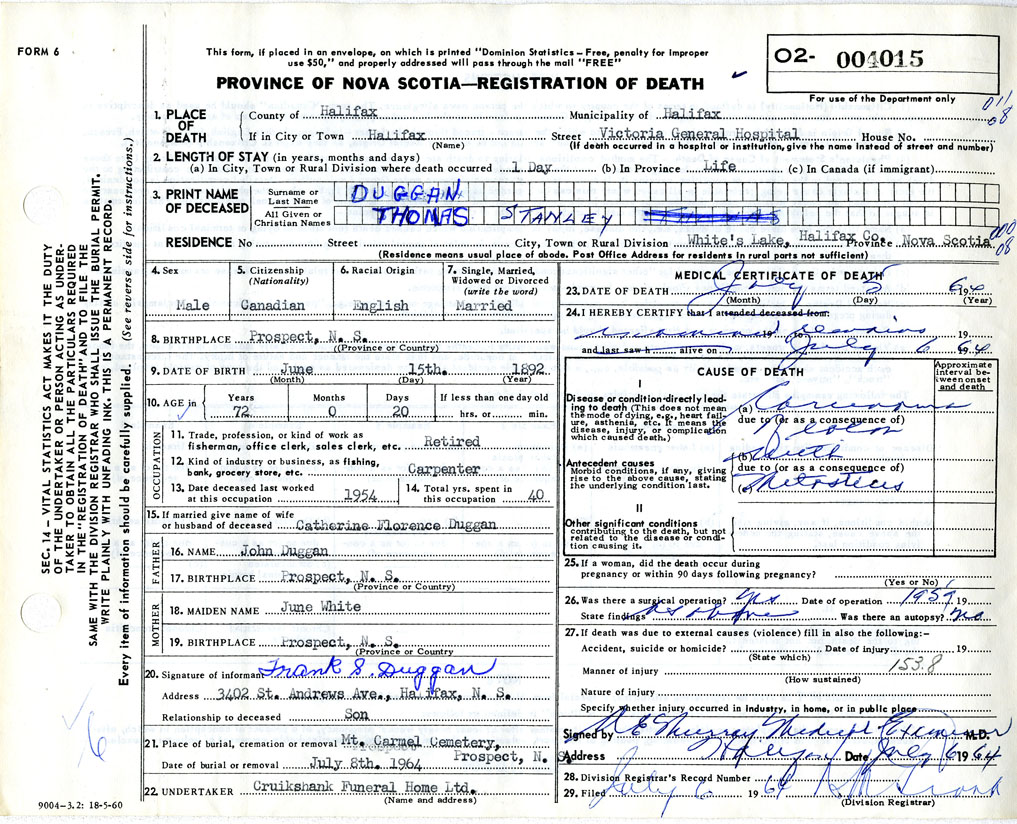 FORM 6
This form, if placed in an envelope, on which is printed "Dominion Statistics – Free, penalty for improper
use $50," and properly addressed will pass through the mail "FREE"
O2- 004015
PROVINCE OF NOVA SCOTIA—REGISTRATION OF DEATH
For use of the Department only
011
08
1. PLACE OF DEATH
County of Halifax Municipality of Halifax
If in City or Town Halifax Street Victoria General Hospital House No.
(Name) (If death occurred in a hospital or institution, give the name instead of street and number)
2. LENGTH OF STAY (in years, months and days)
(a) In City, Town or Rural Division where death occurred 1 Day (b) In Province Life (c) In Canada (if immigrant)
3. PRINT NAME OF DECEASED
Surname or Last Name DUGGAN
All Given or Christian Names THOMAS STANLEY
RESIDENCE No Street City, Town or Rural Division White's Lake, Halifax Co. Province Nova Scotia
08
(Residence means usual place of abode. Post Office Address for residents in rural parts not sufficient)
4. Sex Male
5. Citizenship (Nationality) Canadian
6. Racial Origin English
7. Single, Married, Widowed or Divorced (write the word) Married
8. BIRTHPLACE Prospect, N. S.
((Province or Country)
9. DATE OF BIRTH June 15th. 1892
(Month) (Day) (Year)
10. AGE in Years Months Days If less than one day old
72 0 20 hrs. or min.
OCCUPATION
11. Trade, profession, or kind of work as
fisherman, office clerk, sales clerk, etc. Retired
12. Kind of industry or business, as fishing,
bank, grocery store, etc. Carpenter
13. Date deceased last worked at this occupation 1954
14. Total yrs. spent in this occupation 40
15. If married give name of wife
or husband of deceased Catherine Florence Duggan
FATHER
16. NAME John Duggan
17. BIRTHPLACE Prospect, N. S.
(Province or Country)
MOTHER
18. MAIDEN NAME June White
19. BIRTHPLACE Prospect, N. S.
(Province or Country)
20. Signature of informant Frank S. Duggan
Address 3402 St. Andrews Ave., Halifax, N. S.
Relationship to deceased Son
21. Place of burial, cremation or removal Mt. Carmel Cemetery,
Prospect, N. S.
Date of burial or removal July 8th. 1964
22. UNDERTAKER Cruikshank Funeral Home Ltd.
(Name and address)
MEDICAL CERTIFICATE OF DEATH
23. DATE OF DEATH July 5 1964
(Month) (Day) (Year)
24. I HEREBY CERTIFY that I attended deceased from:
19 to 19
and last saw h alive on July 6 1964
CAUSE OF DEATH
Approximate interval between onset and death
I
Disease or condition-directly leading to death (This does not mean
the mode of dying, e.g., heart failure, asthenia, etc. It means the
disease, injury, or complication
which caused death.)
(a) Carcinoma
due to (or as a consequence of)
of colon
(b) with
due to (or as a consequence of)
(c) Metastases
Antecedent causes
Morbid conditions, if any, giving
rise to the above cause, stating
the underlying condition last.
II
Other significant conditions
contributing to the death, but not
related to the disease or condition causing it.
25. If a woman, did the death occur during
pregnancy or within 90 days following pregnancy?
(Yes or No)
26. Was there a surgical operation? Yes Date of operation 1959 19
State findings as above Was there an autopsy? no
27. If death was due to external causes (violence) fill in also the following:—
Accident, suicide or homicide? Date of injury 19
(State which)
Manner of injury 153.8
(How sustained)
Nature of injury
Specify whether injury occurred in industry, in home, or in public place
Signed by Murray Medical Examiner M.D.
Address Halifax Date July 6 1964
28. Division Registrar's Record Number
29. Filed July 6 1964
(Division Registrar)
SEC. 14 – VITAL STATISTICS ACT MAKES IT THE DUTY
OF THE UNDERTAKER OR PERSON ACTING AS UNDERTAKER TO OBTAIN ALL THE PARTICULARS REQUIRED
IN THE "REGISTRATION OF DEATH" AND TO FILE THE
SAME WITH THE DIVISION REGISTRAR WHO SHALL ISSUE THE BURIAL PERMIT.
WRITE PLAINLY WITH UNFADING INK. THIS IS A PERMANENT RECORD.
Every item of information should be carefully supplied. (See reverse side for instructions.)
6
9004–3.2: 18-5-60